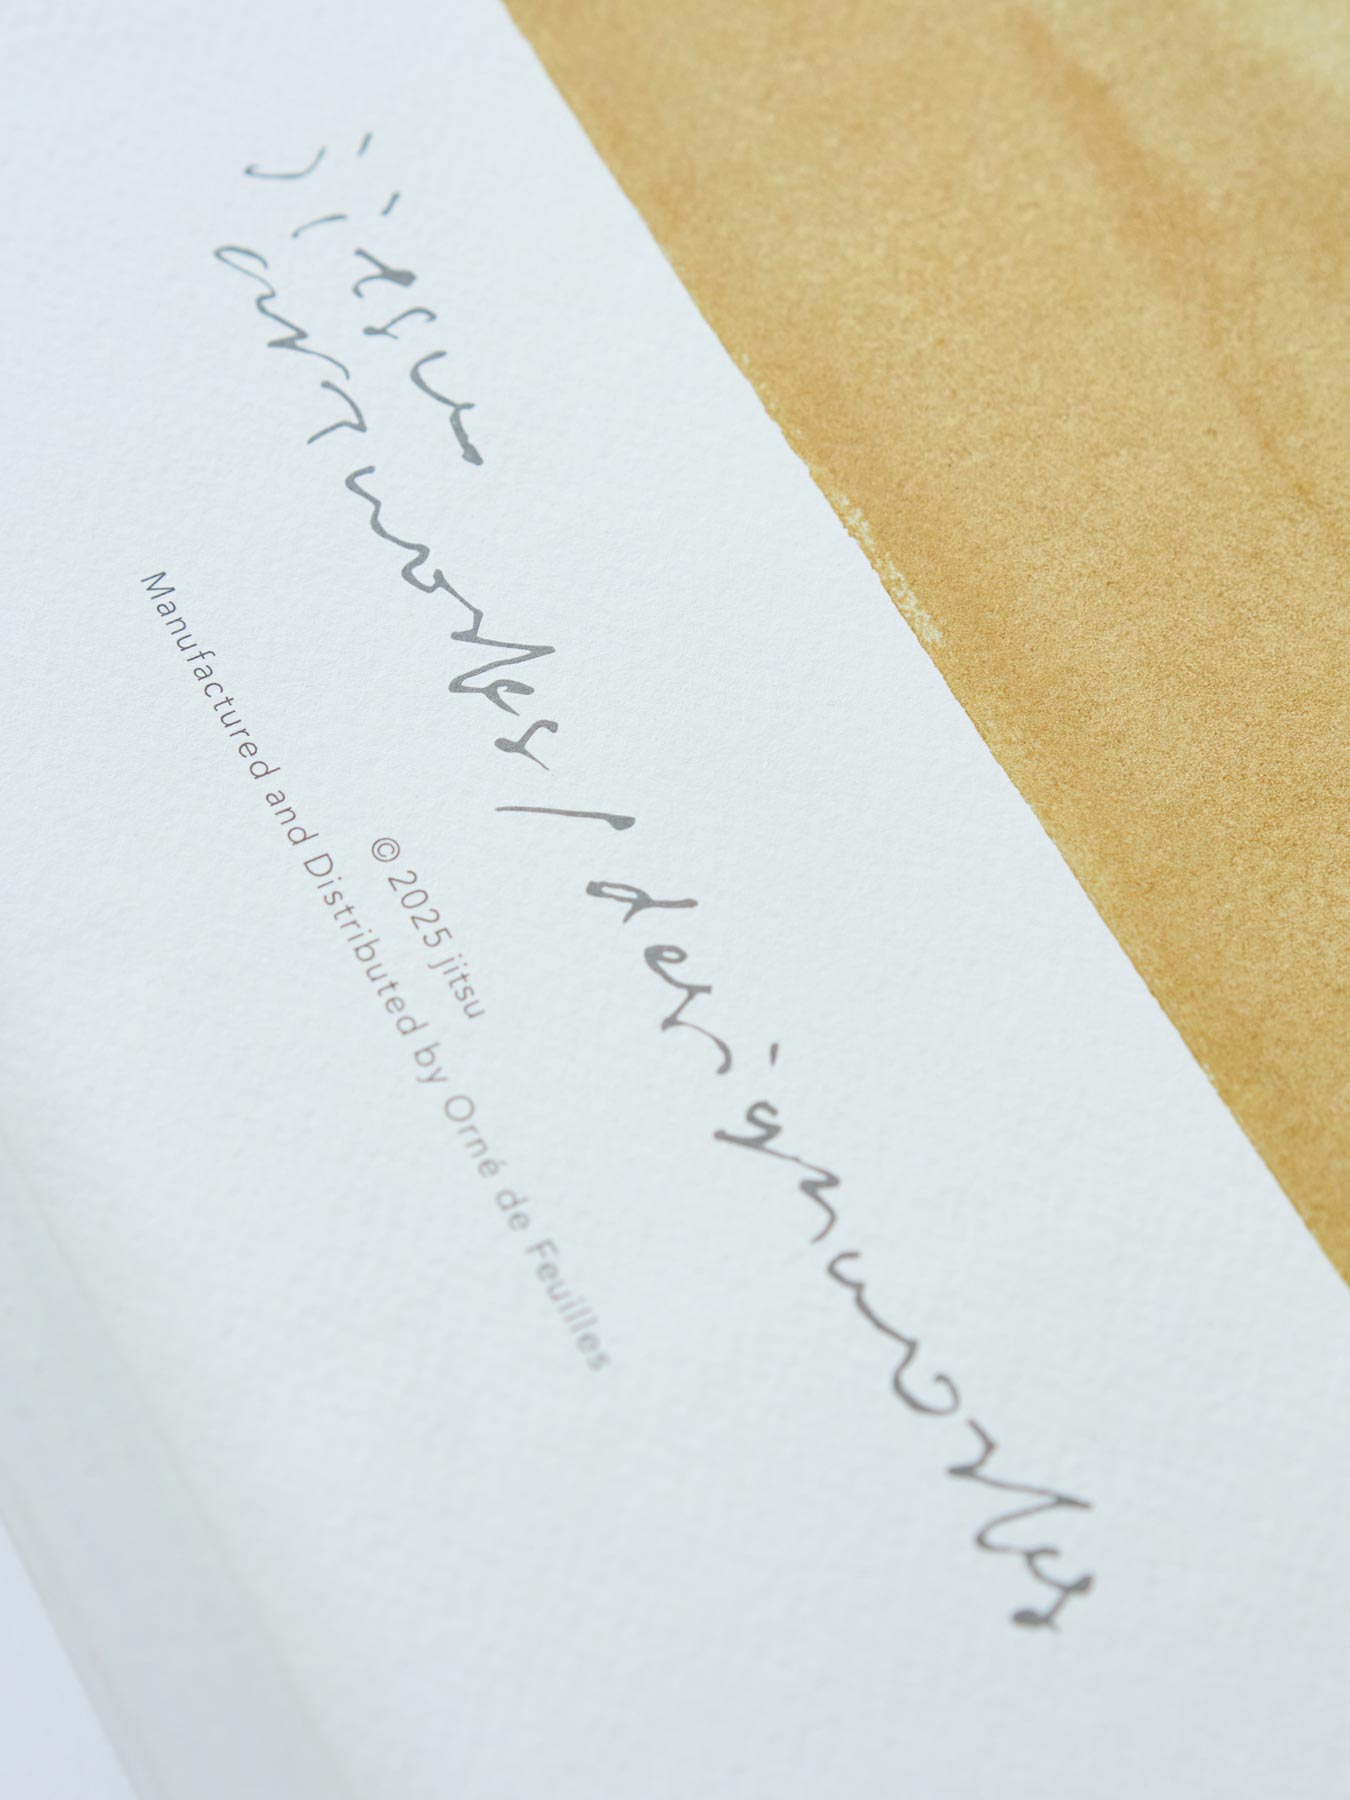 jitsu
art works / designworks
© 2025 jitsu
Manufactured and Distributed by Orné de Feuilles